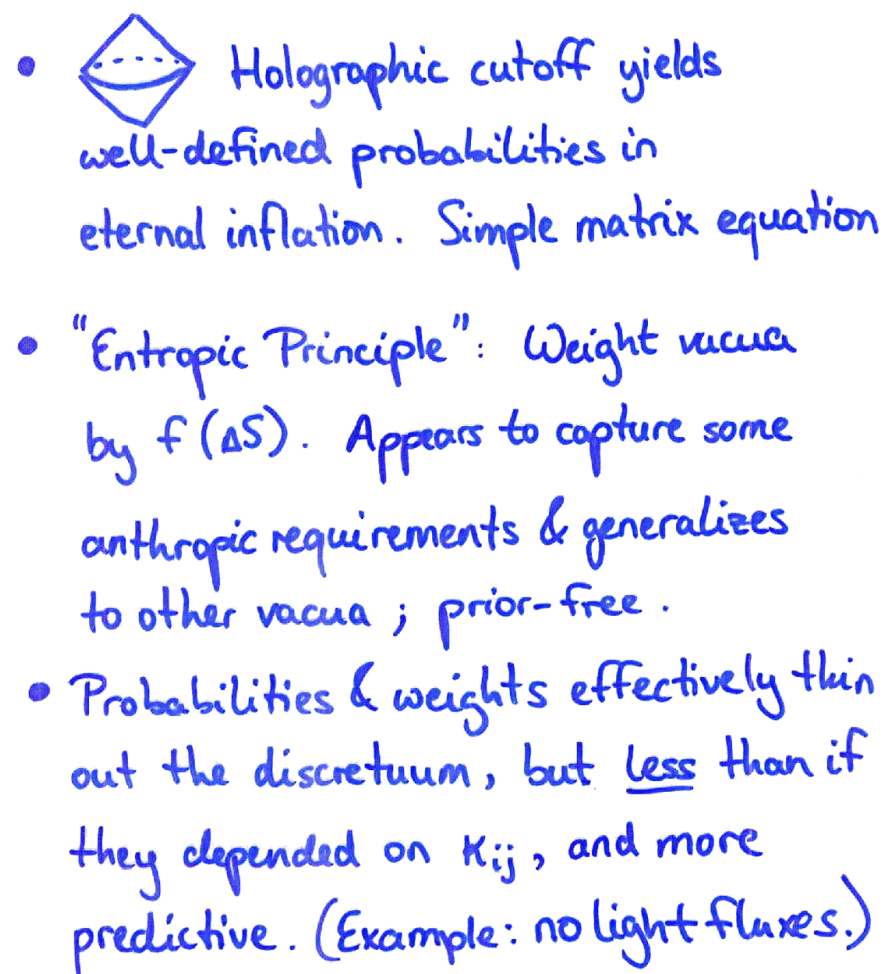 • Holographic cutoff yields
well-defined probabilities in
eternal inflation. Simple matrix equation
• "Entropic Principle": Weight vacua
by f(ΔS). Appears to capture some
anthropic requirements & generalizes
to other vacua; prior-free.
• Probabilities & weights effectively thin
out the discretuum, but less than if
they depended on κij, and more
predictive. (Example: no light fluxes.)